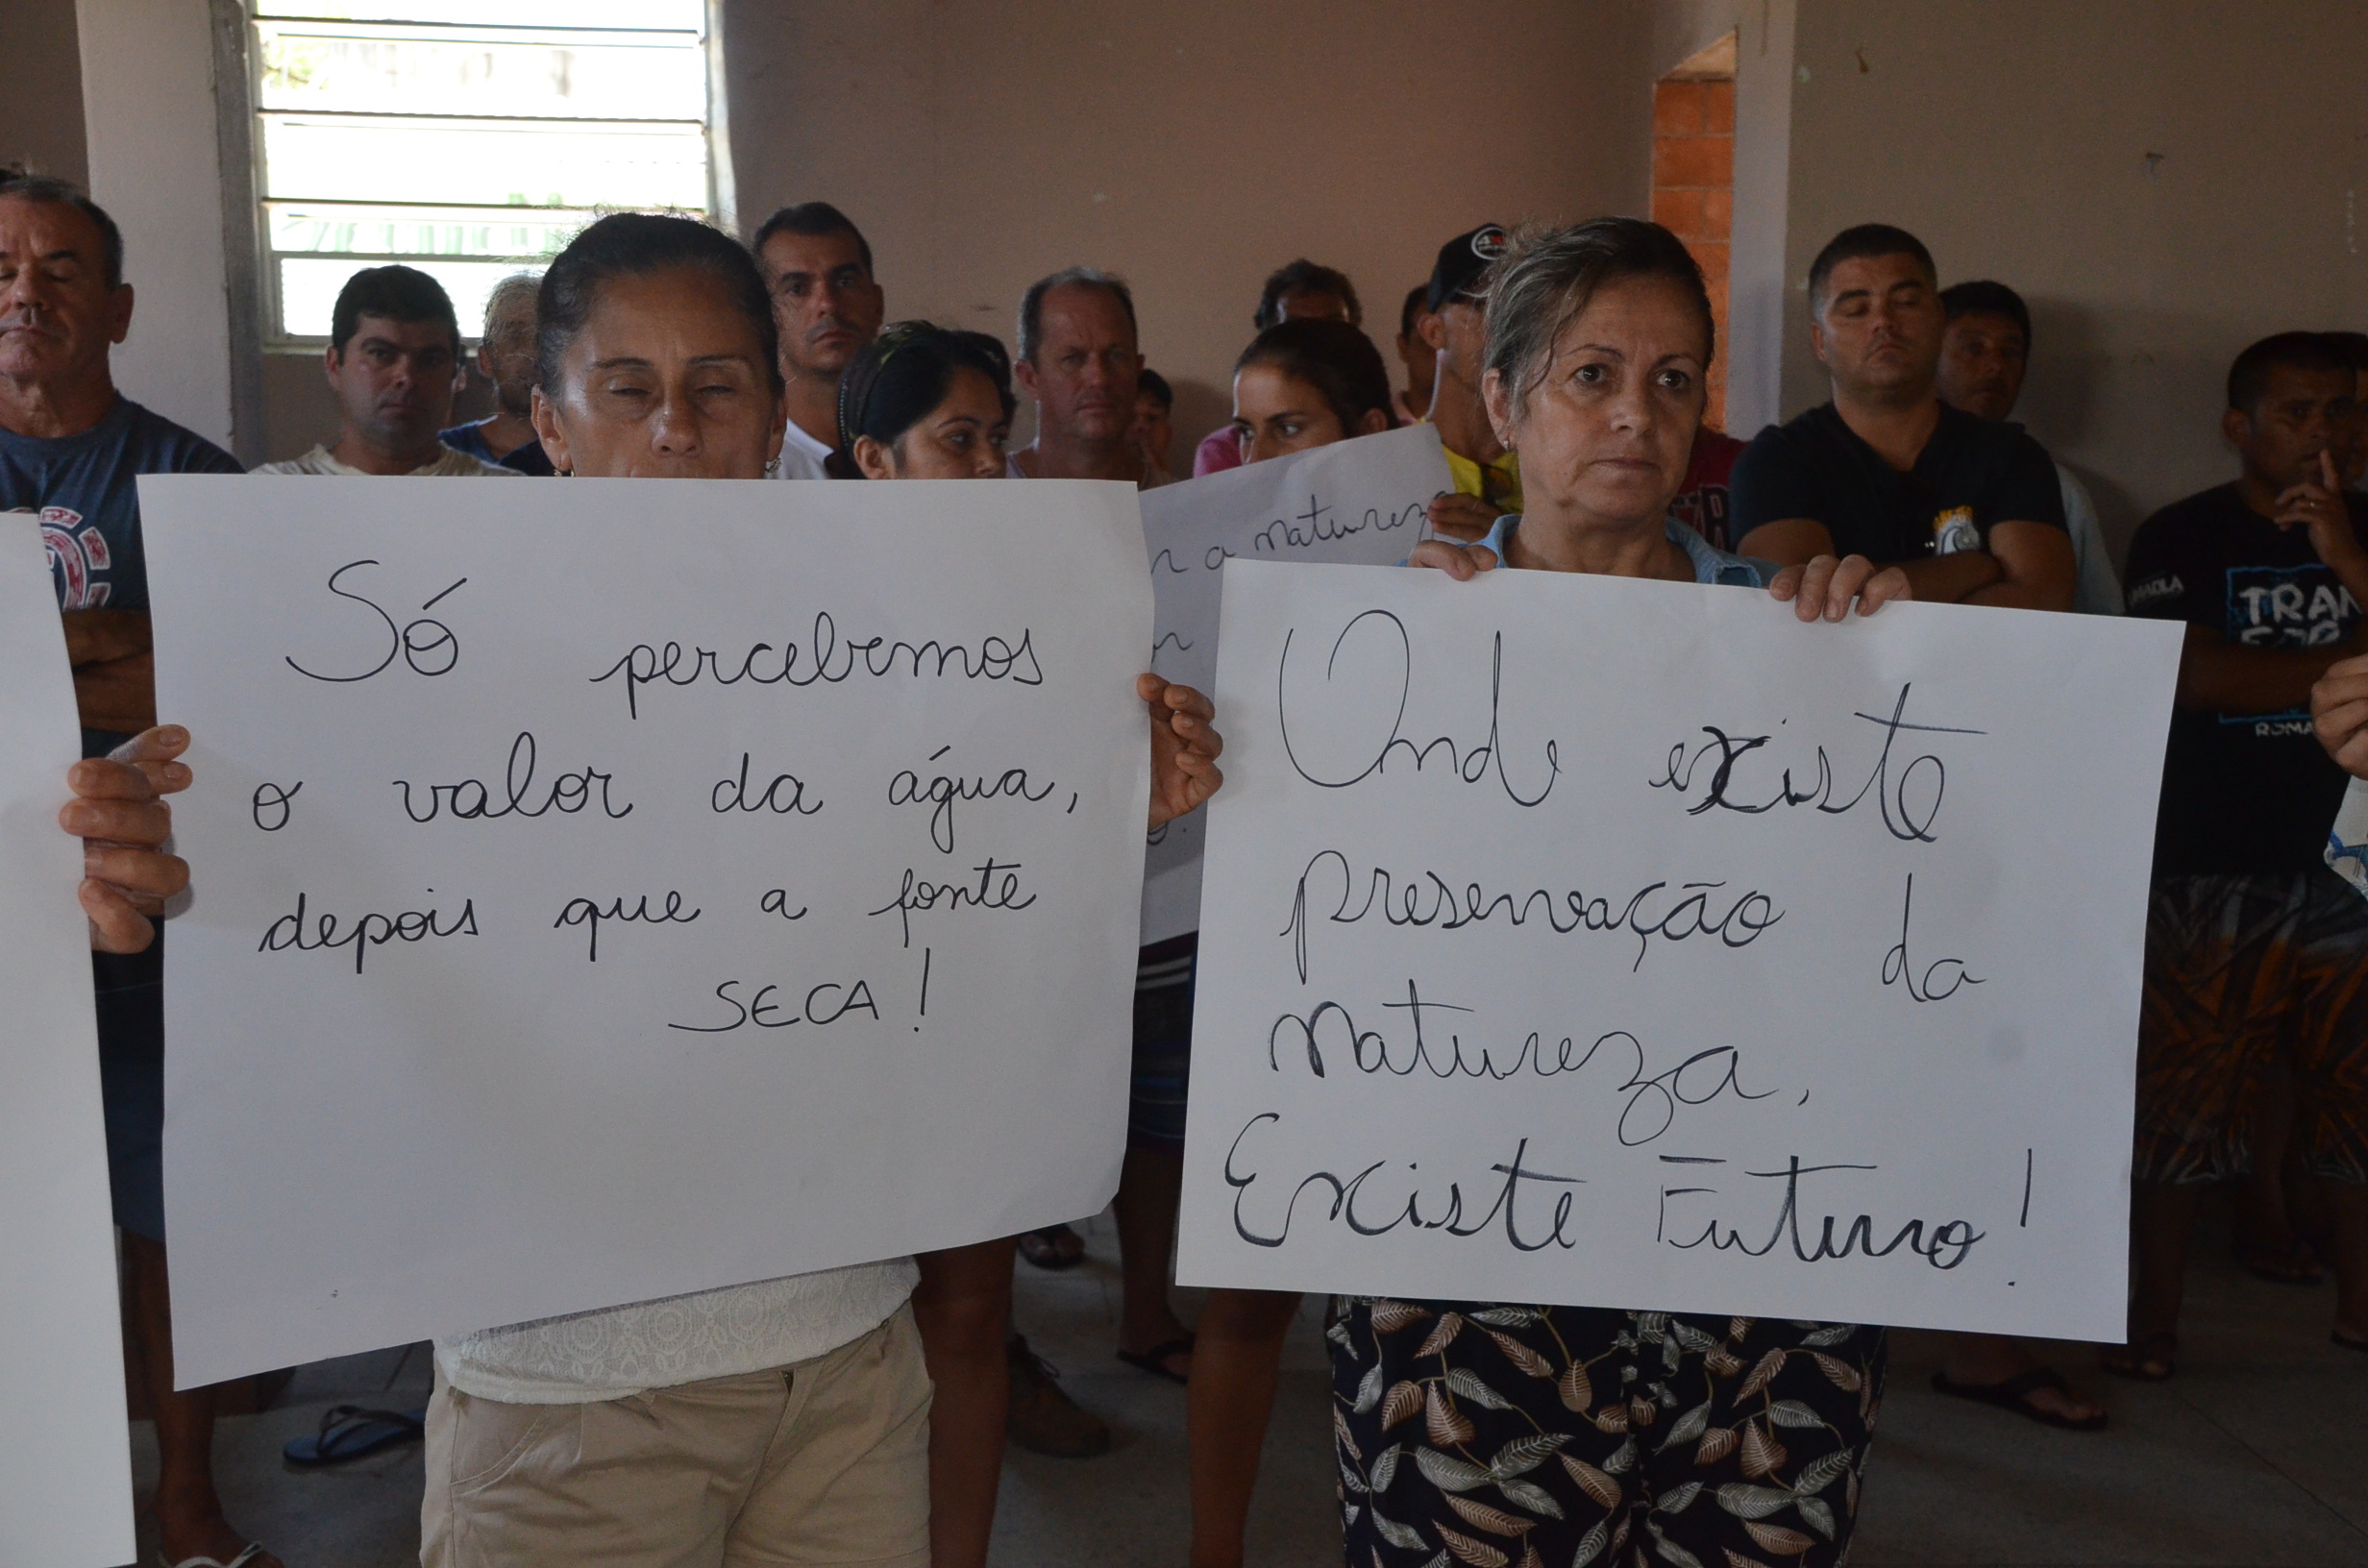 Só percebemos
o valor da água,
depois que a fonte
SECA!
a natureza
Onde existe
preservação da
natureza,
Existe Futuro!
TRAN
ROMA